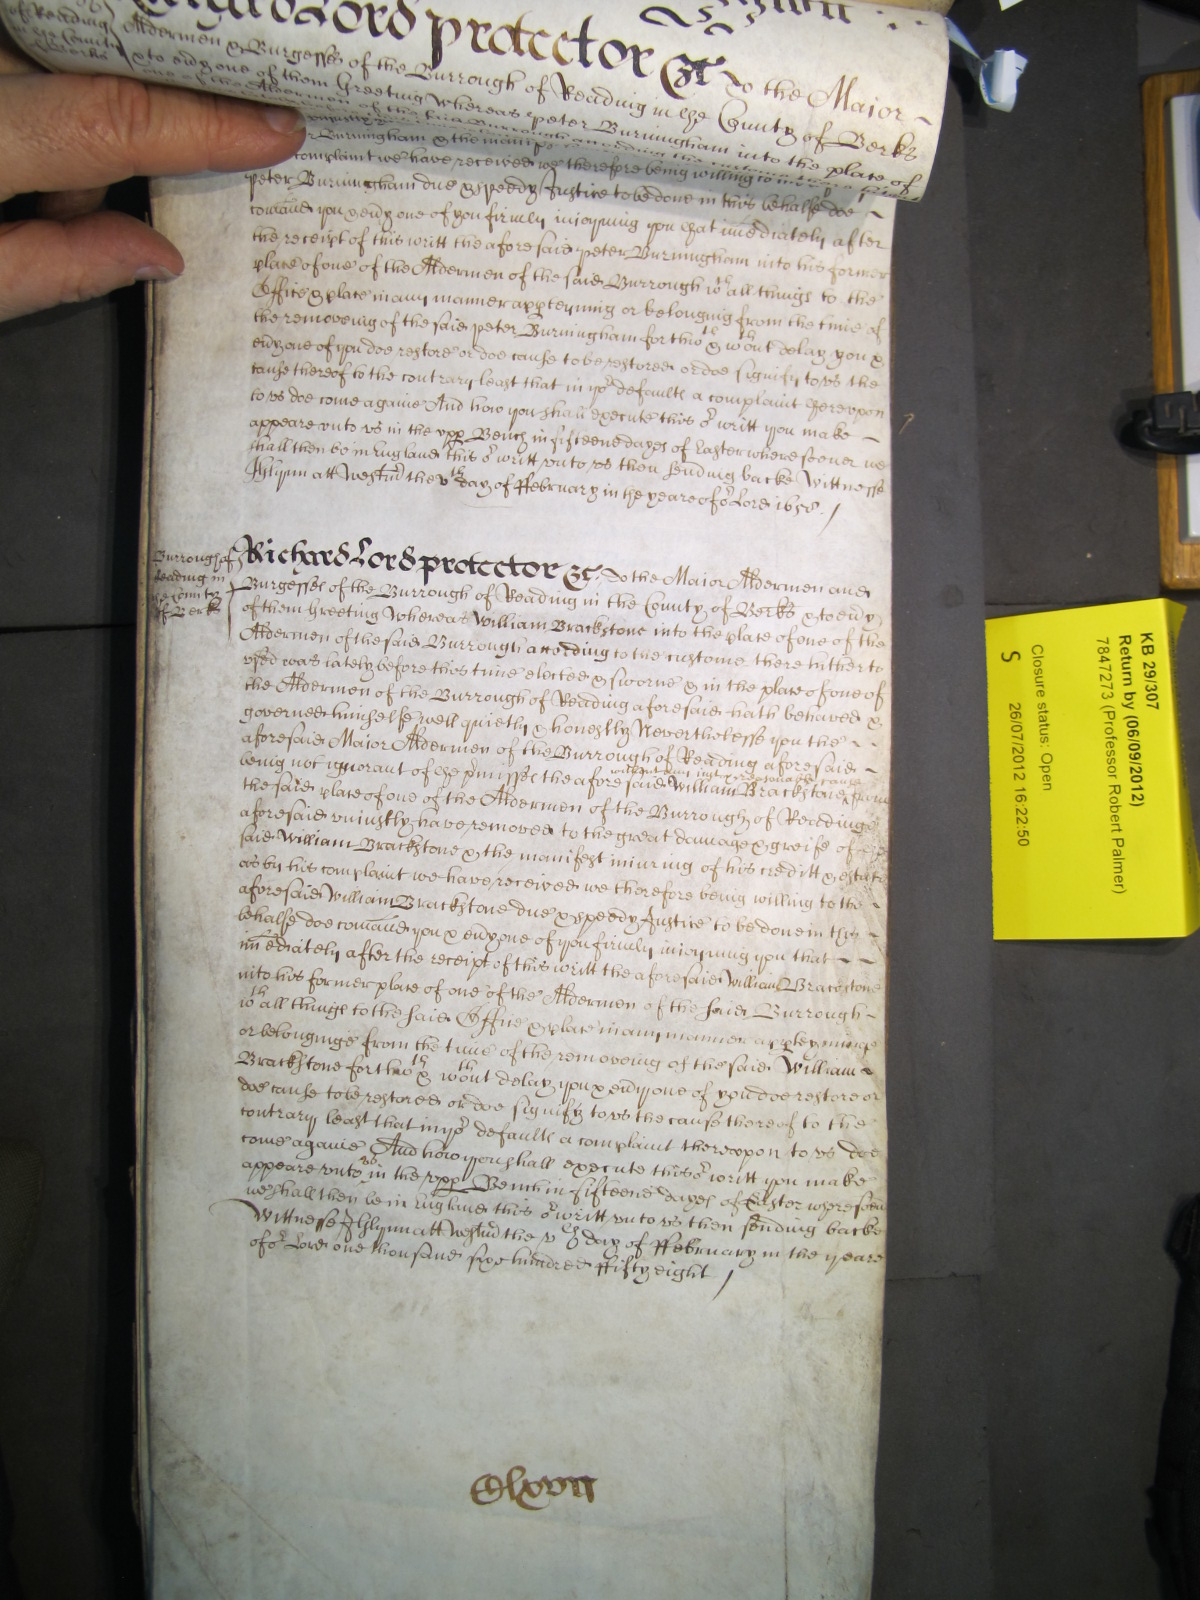 Richard Lord protector &c To the Major
Aldermen & Burgesses of the Burrough of Reading in the County of Berks
& to ev'y one of them Greeting Whereas Peter Burningham into the place of
one of the Aldermen of the said Burrough according to the custome
Burningham & the manifest
complaint we have received we therefore being willing to
Peter Burningham due & speedy Justice to be done in this behalfe doe
comand you & ev'y one of you firmly injoyning you that imediately after
the receipt of this writt the aforesaid Peter Burningham into his former
place of one of the Aldermen of the said Burrough wth all things to the
Office & place in any manner apperteyning or belonging from the time of
the removeing of the said Peter Burningham forthwth & wthout delay you &
ev'y one of you doe restore or doe cause to be restored or doe signify to us the
cause thereof to the contrary least that in yor defaulte a complaint thereupon
to us doe come againe And how you shall execute this or writt you make
appeare unto us in the upp Bench in fifteene dayes of Easter wheresoever we
shall then be in England this or writt unto us then sending backe Wittnesse
J Glynn att Westmr the vth day of ffebruary in the yeare of or Lord 1658
Burrough of
Reading in
the County
of Berk
Richard Lord protector &c. To the Major Aldermen and
Burgesses of the Burrough of Reading in the County of Berks & to ev'y
of them Greeting Whereas William Brackstone into the place of one of the
Aldermen of the said Burrough according to the custome there hitherto
used was lately before this time elected & sworne & in the place of one of
the Aldermen of the Burrough of Reading aforesaid hath behaved &
governed himselfe well quietly & honestly Neverthelesse you the
aforesaid Major Aldermen of the Burrough of Reading aforesaid
being not ignorant of the p'misses the aforesaid William Brackstone without any just & reasonable cause from
the said place of one of the Aldermen of the Burrough of Readinge
aforesaid uniustly have removed to the great damage & greife of the
said William Brackstone & the manifest iniuring of his creditt & estate
as by his complaint we have received we therefore being willing to the
aforesaid William Brackstone due & speedy Justice to be done in this
behalfe doe comand you & ev'y one of you firmly injoyning you that
imediately after the receipt of this writt the aforesaid William Brackstone
into his former place of one of the Aldermen of the said Burrough
wth all things to the said Office & place in any manner apperteyninge
or belonginge from the time of the removeing of the said William
Brackstone forthwth & wthout delay you & ev'y one of you doe restore or
doe cause to be restored or doe signify to us the cause thereof to the
contrary least that in yor defaulte a complaint thereupon to us doe
come againe And how you shall execute this or writt you make
appeare unto us in the upp Bench in fifteene dayes of Easter wheresoever
we shall then be in England this or writt unto us then sending backe
Wittnesse J Glynn att Westmr the vth day of ffebruary in the yeare
of or Lord one thousand six hundred ffifty eight
Clxvii
KB 29/307
Return by (06/09/2012)
7847273 (Professor Robert Palmer)
Closure status: Open
S 26/07/2012 16:22:50